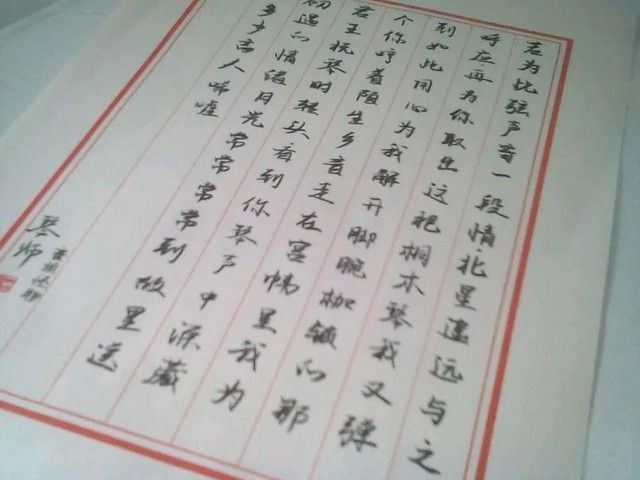 若为此弦声寄一段情北星遥远与之
呼应再为你取出这把桐木琴我又弹
到如此用心为我解开脚腕枷锁的那
个你哼着陌生乡音走在宫帏里我为
君王抚琴时转头看到你琴声中深藏
初遇的情绪月光常常常常到故里送
多少离人唏嘘
琴师